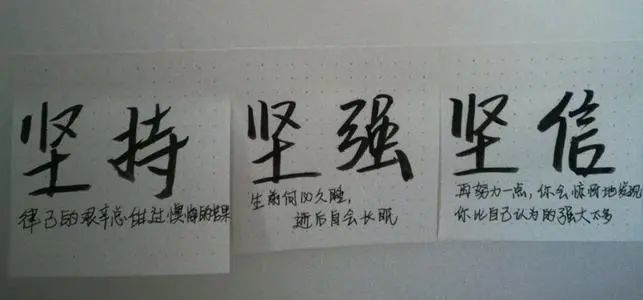 坚持
律己的艰辛总能过懊悔的苦果
坚强
生前何必久睡,
逝后自会长眠
坚信
再努力一点,你会惊讶地发现
你比自己认为的强大太多